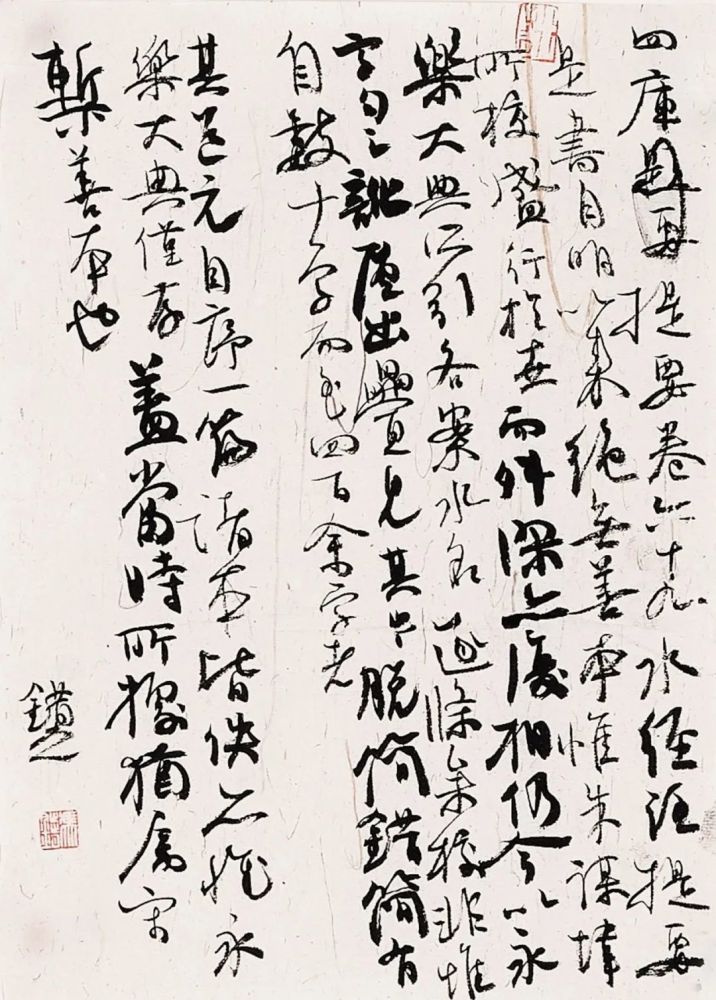 四库提要提要卷六十九水经注提要
是書自明以来绝無善本惟朱谋㙔
所校盛行於世而舛谬亦复相仍今以永
樂大典所引各案水名逐條参校非惟
字句之訛層出疊見其中脱简錯简有
自数十字而至四百余字者
其道元自序一篇諸本皆佚亦惟永
樂大典僅存蓋當時所據猶属宋
槧善本也